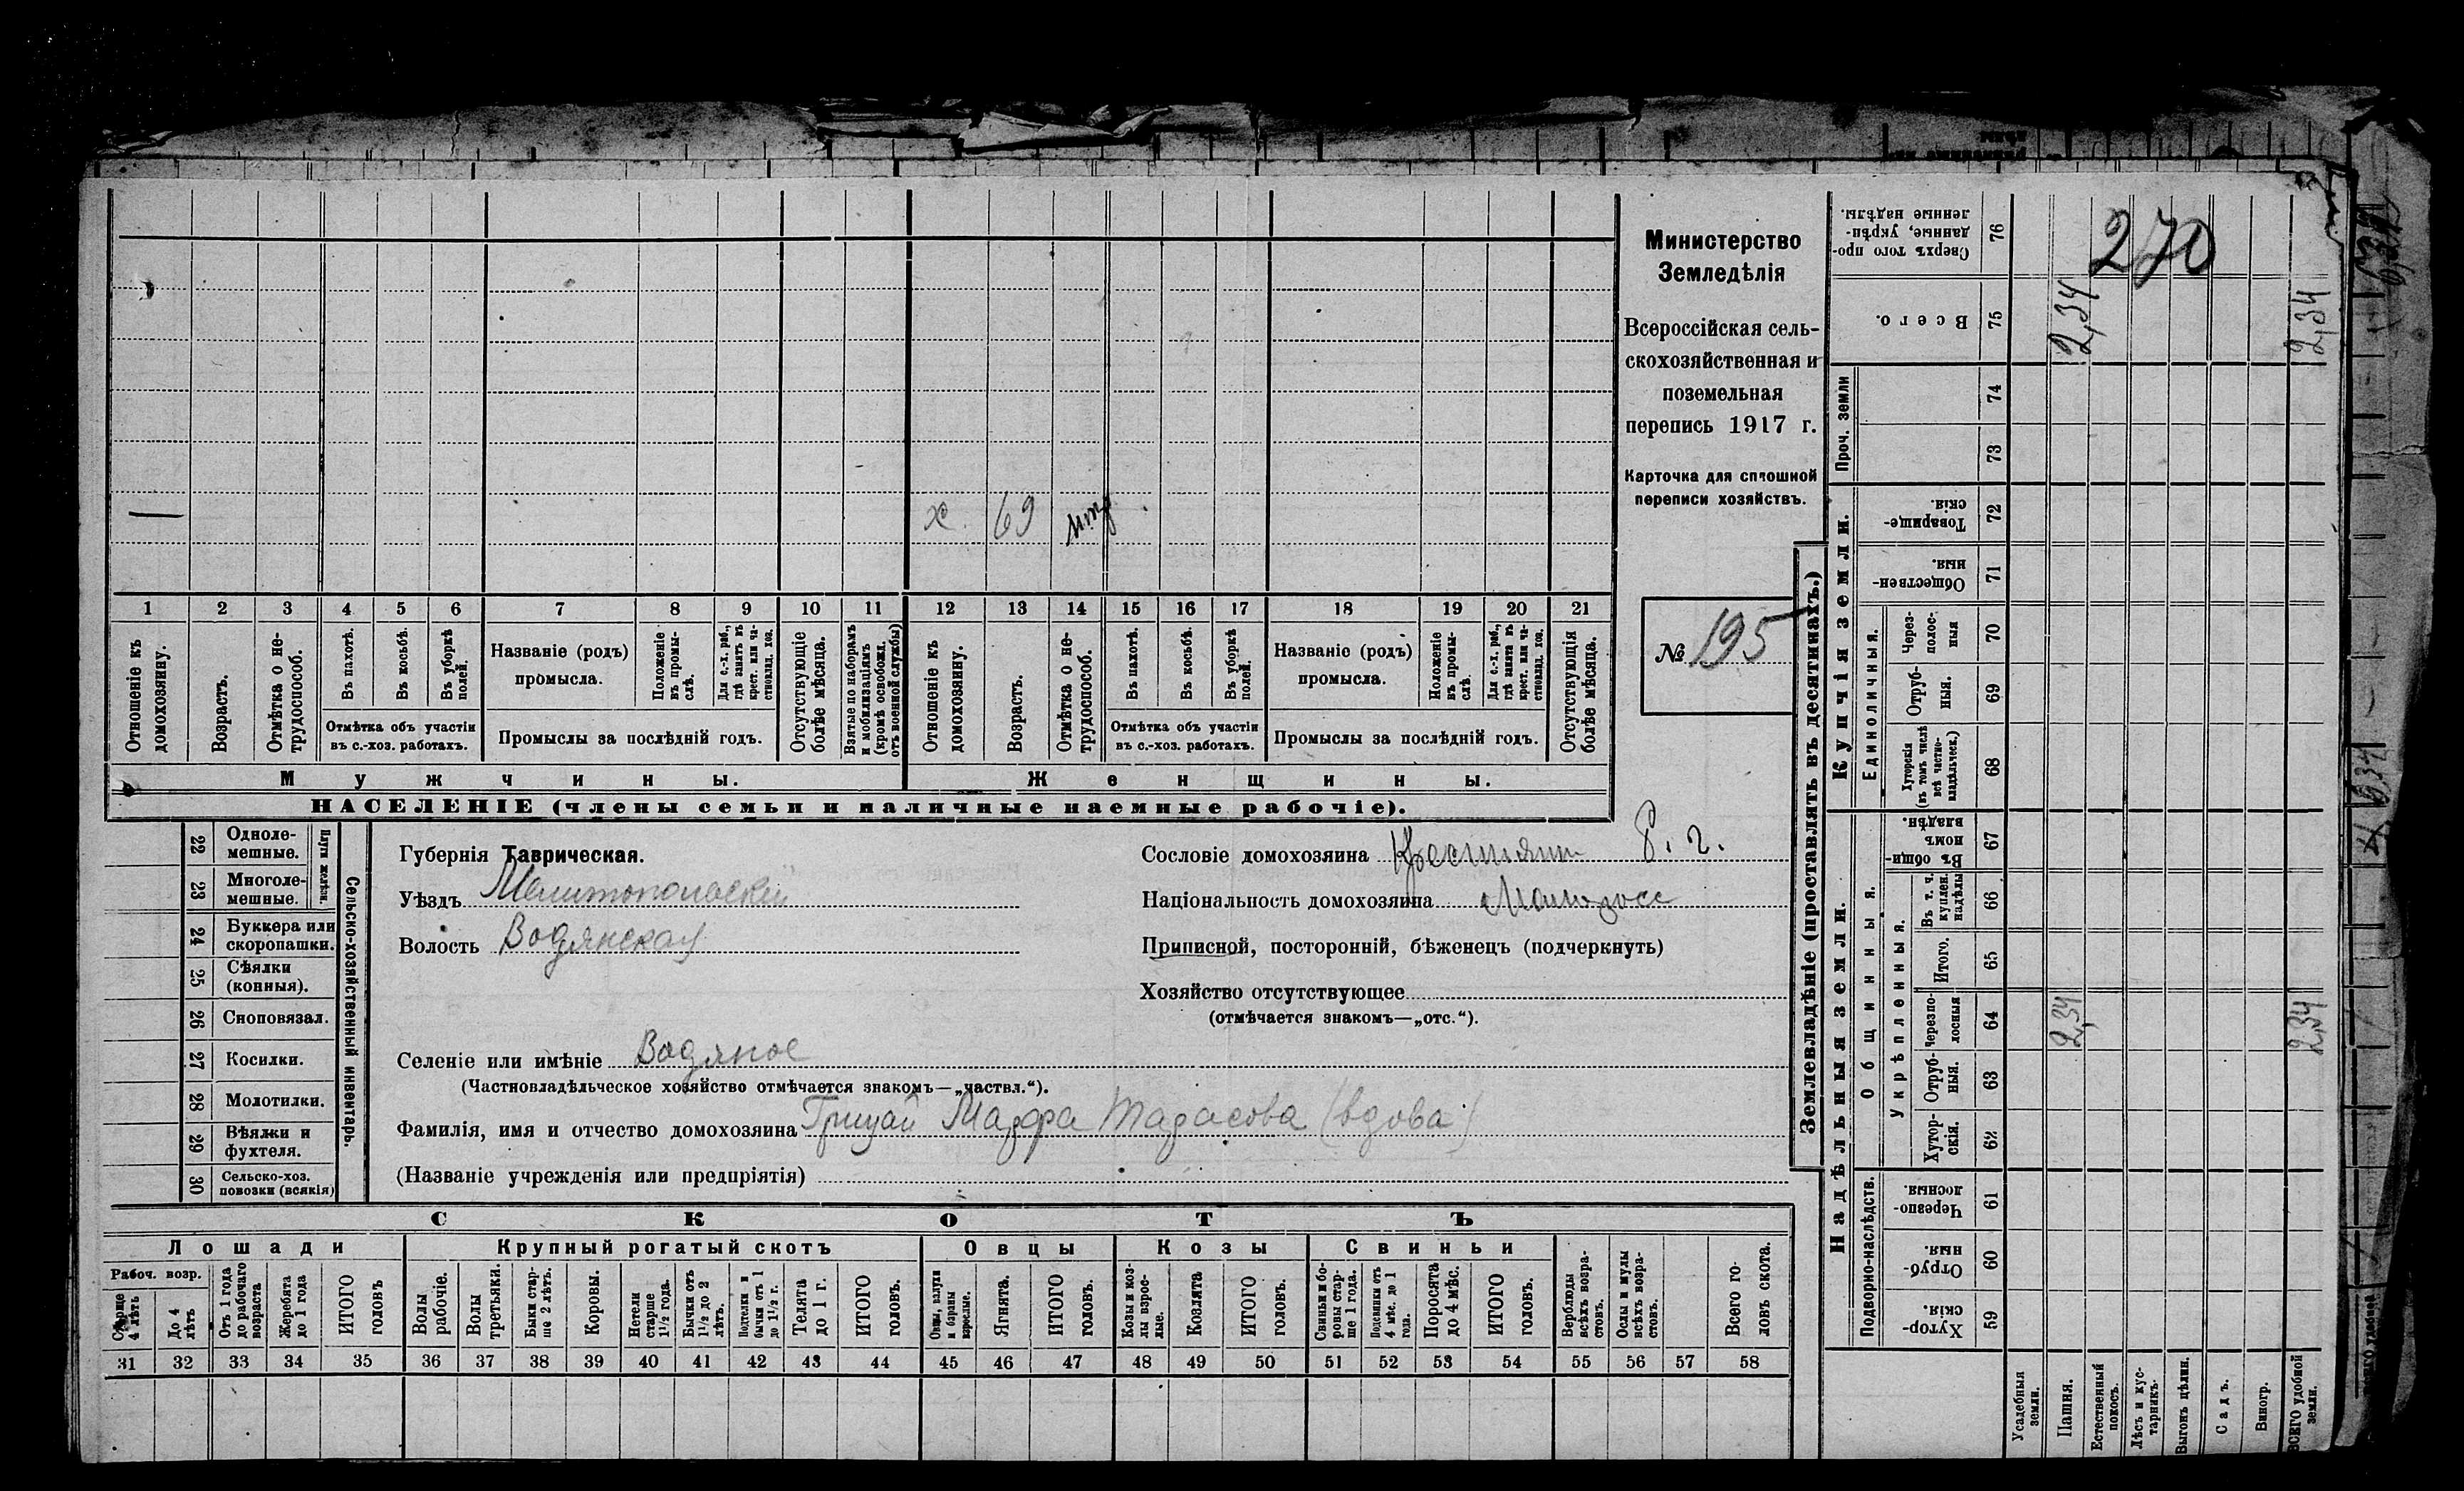 Министерство
Земледѣлія
Всероссійская сель-
скохозяйственная и
поземельная
перепись 1917 г.
Карточка для сплошной
переписи хозяйствъ.
№ 195
270
— х. 69
1 2 3 4 5 6 7 8 9 10 11 12 13 14 15 16 17 18 19 20 21
Отношеніе къ домохозяину.
Возрастъ.
Отмѣтка о не-трудоспособ.
Въ пахотѣ.
Въ косьбѣ.
Въ уборкѣ полей.
Отмѣтка объ участіи въ с.-хоз. работахъ.
Названіе (родъ) промысла.
Положеніе въ промы-слѣ.
Для с.-х. раб., гдѣ занятъ въ крест. или ча-стновлад. хоз.
Промыслы за послѣдній годъ.
Отсутствующіе болѣе мѣсяца.
Взятые по наборамъ и мобилизаціямъ (кромѣ освобожд. отъ военной службы)
Отношеніе къ домохозяину.
Возрастъ.
Отмѣтка о не-трудоспособ.
Въ пахотѣ.
Въ косьбѣ.
Въ уборкѣ полей.
Отмѣтка объ участіи въ с.-хоз. работахъ.
Названіе (родъ) промысла.
Положеніе въ промы-слѣ.
Для с.-х. раб., гдѣ занята въ крест. или ча-стновлад. хоз.
Промыслы за послѣдній годъ.
Отсутствующія болѣе мѣсяца.
Мужчины. Женщины.
НАСЕЛЕНІЕ (члены семьи и наличные наемные рабочіе).
22 Одноле-мешные.
23 Многоле-мешные.
Плуги желѣзн.
24 Буккера или скоропашки.
25 Сѣялки (конныя).
26 Сноповязал.
27 Косилки.
28 Молотилки.
29 Вѣялки и фухтеля.
30 Сельско-хоз. повозки (всякія)
Сельско-хозяйственный инвентарь.
Губернія Таврическая.
Уѣздъ Мелитопольскій
Волость Водянская
Сословіе домохозяина Крестьянин
Національность домохозяина Малоросс
Приписной, посторонній, бѣженецъ (подчеркнуть)
Хозяйство отсутствующее
(отмѣчается знакомъ—„отс.“).
Селеніе или имѣніе Водяное
(Частновладѣльческое хозяйство отмѣчается знакомъ—„частвл.“).
Фамилія, имя и отчество домохозяина Грицай Марфа Тарасова (вдова)
(Названіе учрежденія или предпріятія)
СКОТЪ
Лошади Крупный рогатый скотъ Овцы Козы Свиньи
Рабоч. возр.
Старше 4 лѣтъ
До 4 лѣтъ
Отъ 1 года до рабочаго возраста
Жеребята до 1 года
ИТОГО головъ
Волы рабочіе.
Волы третьяки.
Быки стар-ше 2 лѣтъ.
Коровы.
Нетели старше 1½ года.
Бычки отъ 1½ до 2 лѣтъ.
Подтелки и бычки отъ 1 до 1½ г.
Телята до 1 г.
ИТОГО головъ.
Овцы, валухи и бараны взрослые.
Ягнята.
ИТОГО головъ.
Козы и коз-лы взрос-лые.
Козлята
ИТОГО головъ.
Свиньи и бо-ровы стар-ше 1 года.
Подсвинки отъ 4 мѣс. до 1 года.
Поросята до 4 мѣс.
ИТОГО головъ.
Верблюды всѣхъ возра-стовъ.
Ослы и мулы всѣхъ возра-стовъ.
Всего го-ловъ скота.
31 32 33 34 35 36 37 38 39 40 41 42 43 44 45 46 47 48 49 50 51 52 53 54 55 56 57 58
Землевладѣніе (проставлять въ десятинахъ.)
Сверхъ того про-данные, укрѣп-ленные надѣлы. 76
Всего. 75 2,34 2,34
Проч. земли 74 73
Купчія земли.
Товарище-скія. 72
Обществен-ныя. 71
Единоличныя.
Через-полос-ныя 70
Отруб-ныя. 69
Хуторскія (въ томъ числѣ всѣ частно-владѣльческ.) 68
Надѣльныя земли.
Общинныя.
Въ общи-номъ владѣн. 67
Укрѣпленныя.
Въ т. ч. куплен. надѣлы 66
Итого. 65
Черезпо-лосныя 64 2,34 2,34
Отруб-ныя. 63
Хутор-скія. 62
Подворно-наслѣдств.
Черезпо-лосныя. 61
Отруб-ныя. 60
Хутор-скія. 59
Усадебныя земли.
Пашня.
Естественный покосъ.
Лѣсъ и кус-тарникъ.
Выгонъ цѣлин.
Садъ.
Виногр.
ВСЕГО удобной земли.